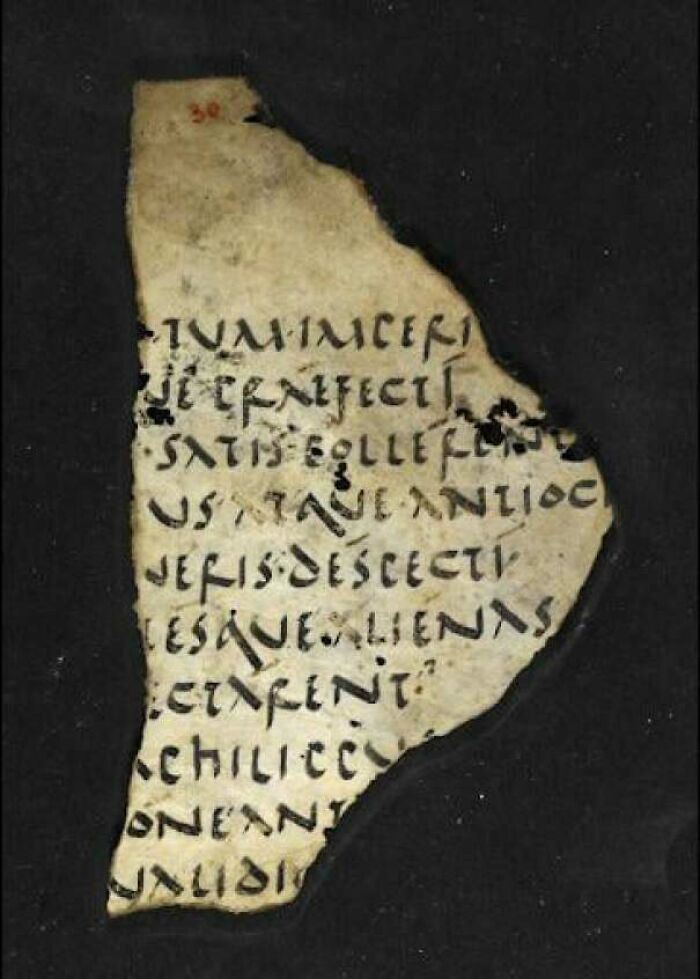 30
·TUM·IMPERI
UE PRAEFECTI
·SATIS·POLLERENT
US·ATQUE·ANTIOCH
UERIS·DESPECTI
PESQUE·ALIENAS
ECTARENT
PHILIPPUS
ONE·ANT
UALIDIO